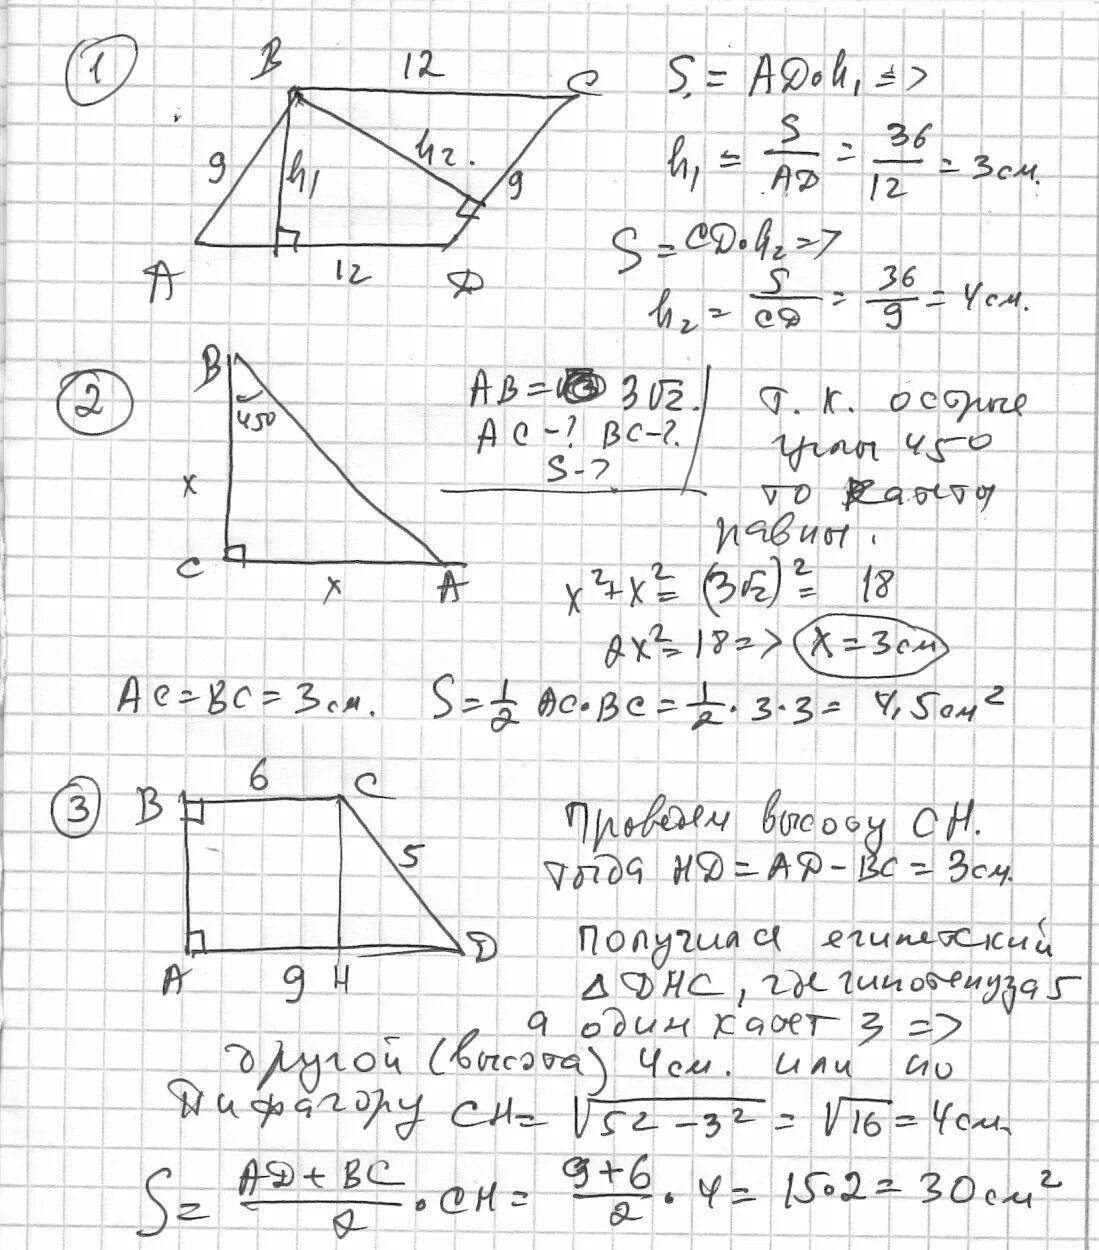 1
B 12 C
9 h₁ h₂. 9
A 12 D
S = AD·h₁ =>
h₁ = S/AD = 36/12 = 3см.
S = CD·h₂ =>
h₂ = S/CD = 36/9 = 4см.
2
B
45°
x
C x A
AB = 3√2.
AC-? BC-?.
S-?
Т.к. острые
углы 45°
то катеты
равны.
x²+x² = (3√2)² = 18
2x² = 18 => x = 3см
AC = BC = 3см. S = 1/2 AC·BC = 1/2 · 3 · 3 = 4,5см²
3
B 6 C
5
A 9 H D
Проведем высоту CH.
тогда HD = AD - BC = 3см.
Получился египетский
Δ DHC, где гипотенуза 5
а один катет 3 =>
другой (высота) 4см. или по
Пифагору CH = √5² - 3² = √16 = 4см.
S = AD + BC/2 · CH = 9+6/2 · 4 = 15·2 = 30см²